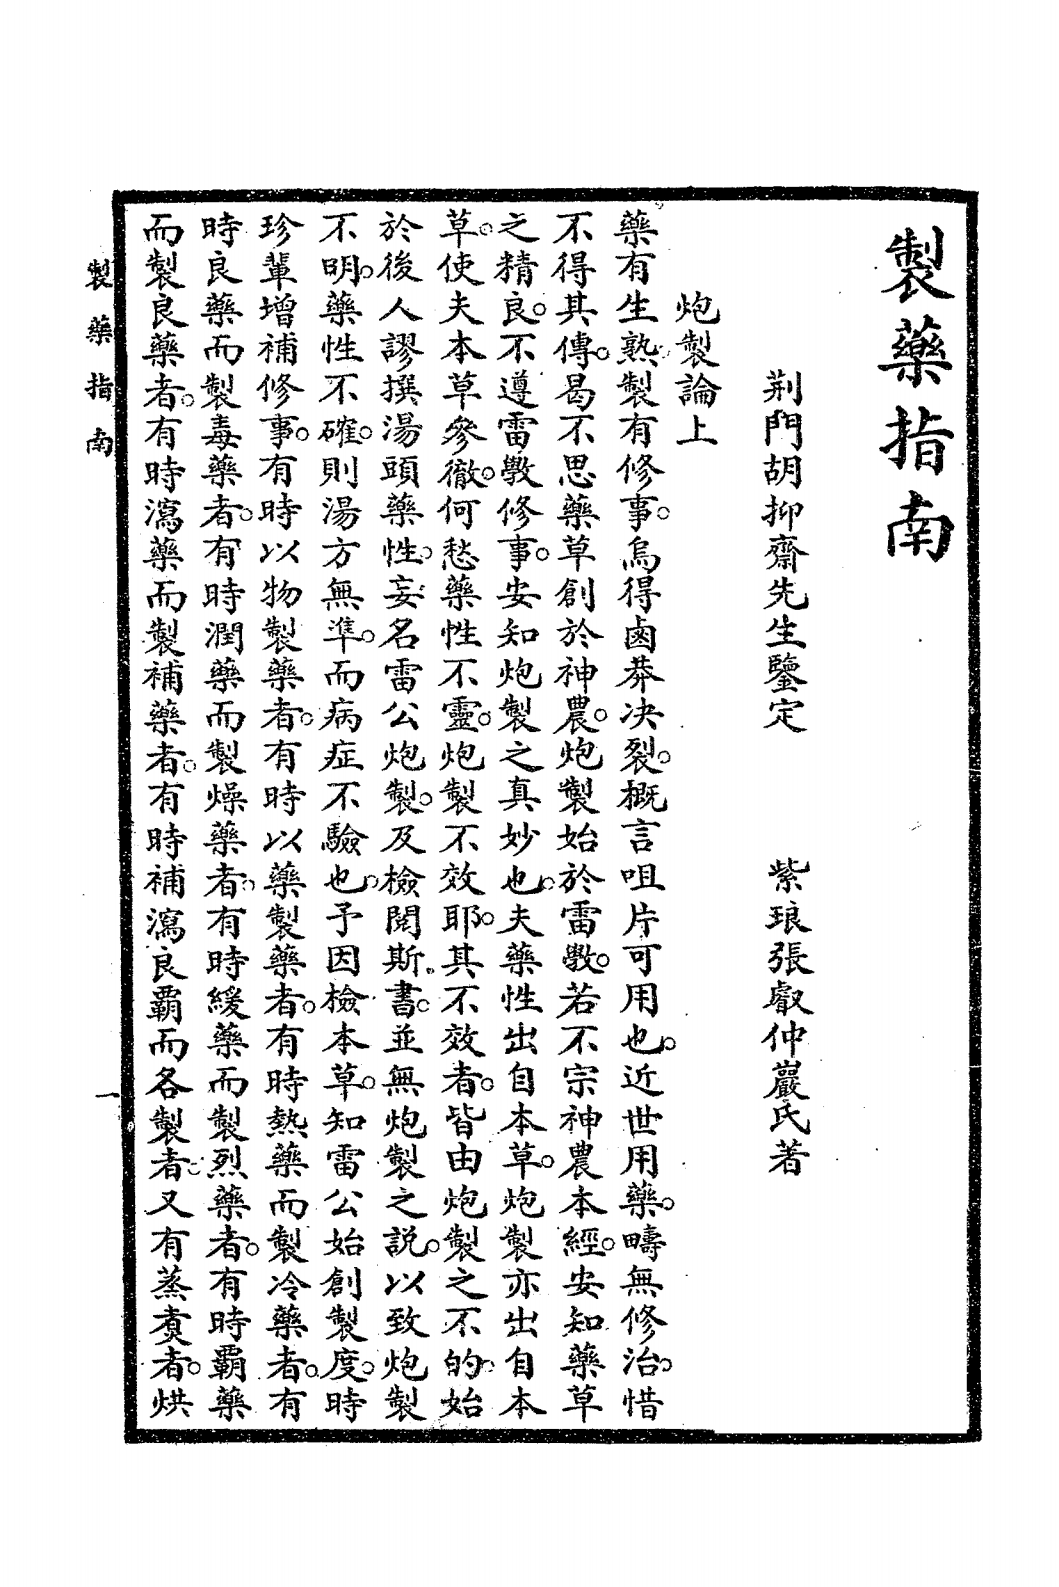 製藥指南
荆門胡抑齋先生鑒定　紫琅張叡仲巖氏著
炮製論上
藥有生熟製有修事。烏得鹵莽决裂。概言咀片可用也。近世用藥。疇無修治。惜
不得其傳。曷不思藥草創於神農。炮製始於雷斆。若不宗神農本經。安知藥草
之精良。不遵雷斆修事。安知炮製之真妙也。夫藥性出自本草。炮製亦出自本
草。使夫本草參徹。何愁藥性不靈。炮製不效耶。其不效者。皆由炮製之不的。始
於後人謬撰湯頭藥性。妄名雷公炮製。及檢閱斯書。並無炮製之説。以致炮製
不明。藥性不確。則湯方無準。而病症不驗也。予因檢本草。知雷公始創製度。時
珍輩增補修事。有時以物製藥者。有時以藥製藥者。有時熱藥而製冷藥者。有
時良藥而製毒藥者。有時潤藥而製燥藥者。有時緩藥而製烈藥者。有時霸藥
而製良藥者。有時瀉藥而製補藥者。有時補瀉良霸而各製者。又有蒸煑者。烘
製藥指南
一